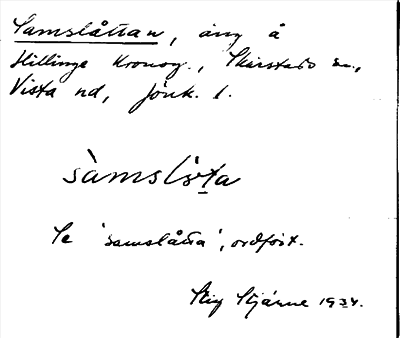 Samslåttan, äng å
Hillinge Kronog., Skärstads sn.,
Vista hd, Jönk. l.
sàmslåta
Se 'samslåtta', ordföst.
Stig Stjärne 1934.